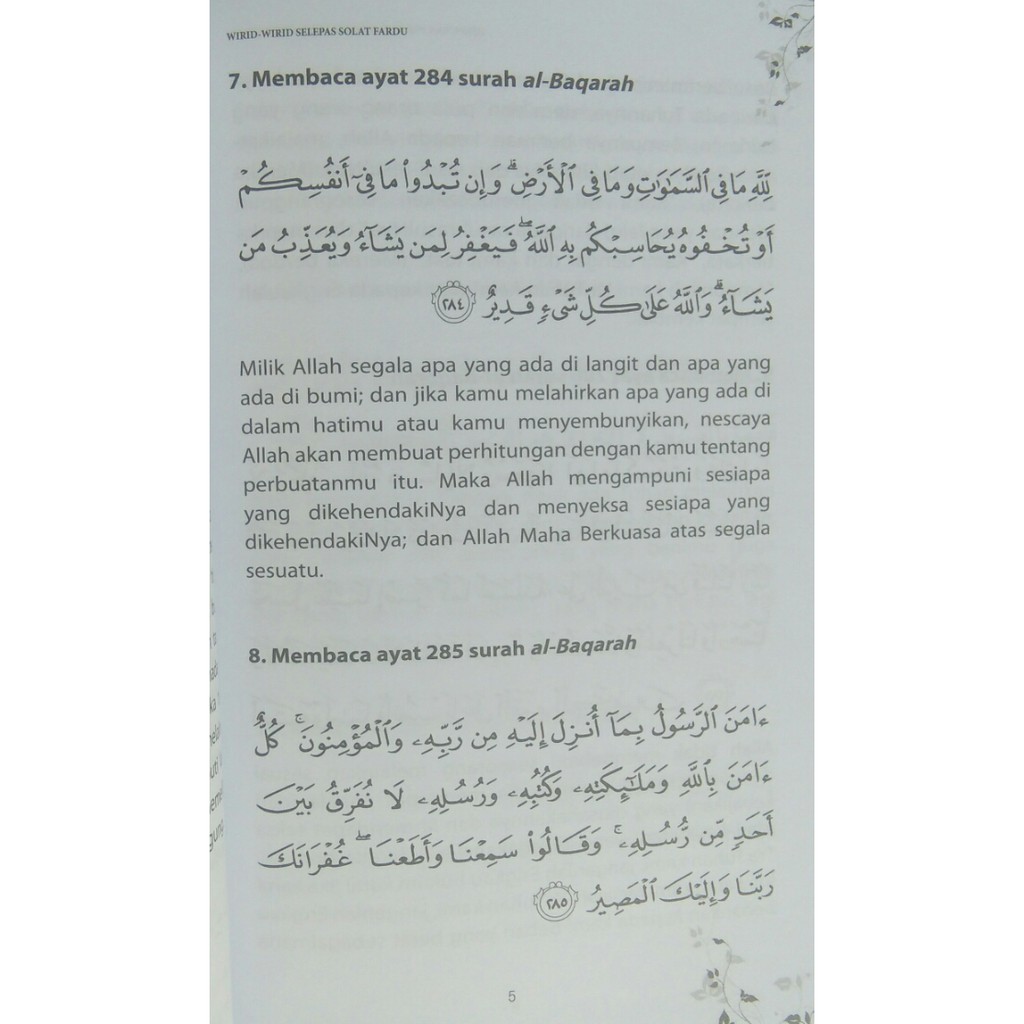 WIRID-WIRID SELEPAS SOLAT FARDU
7. Membaca ayat 284 surah al-Baqarah
لِّلَّهِ مَا فِى ٱلسَّمَٰوَٰتِ وَمَا فِى ٱلْأَرْضِ ۗ وَإِن تُبْدُوا۟ مَا فِىٓ أَنفُسِكُمْ
أَوْ تُخْفُوهُ يُحَاسِبْكُم بِهِ ٱللَّهُ ۖ فَيَغْفِرُ لِمَن يَشَآءُ وَيُعَذِّبُ مَن
يَشَآءُ ۗ وَٱللَّهُ عَلَىٰ كُلِّ شَىْءٍ قَدِيرٌ ٢٨٤
Milik Allah segala apa yang ada di langit dan apa yang
ada di bumi; dan jika kamu melahirkan apa yang ada di
dalam hatimu atau kamu menyembunyikan, nescaya
Allah akan membuat perhitungan dengan kamu tentang
perbuatanmu itu. Maka Allah mengampuni sesiapa
yang dikehendakiNya dan menyeksa sesiapa yang
dikehendakiNya; dan Allah Maha Berkuasa atas segala
sesuatu.
8. Membaca ayat 285 surah al-Baqarah
ءَامَنَ ٱلرَّسُولُ بِمَآ أُنزِلَ إِلَيْهِ مِن رَّبِّهِۦ وَٱلْمُؤْمِنُونَ ۚ كُلٌّ
ءَامَنَ بِٱللَّهِ وَمَلَٰٓئِكَتِهِۦ وَكُتُبِهِۦ وَرُسُلِهِۦ لَا نُفَرِّقُ بَيْنَ
أَحَدٍ مِّن رُّسُلِهِۦ ۚ وَقَالُوا۟ سَمِعْنَا وَأَطَعْنَا ۖ غُفْرَانَكَ
رَبَّنَا وَإِلَيْكَ ٱلْمَصِيرُ ٢٨٥
5